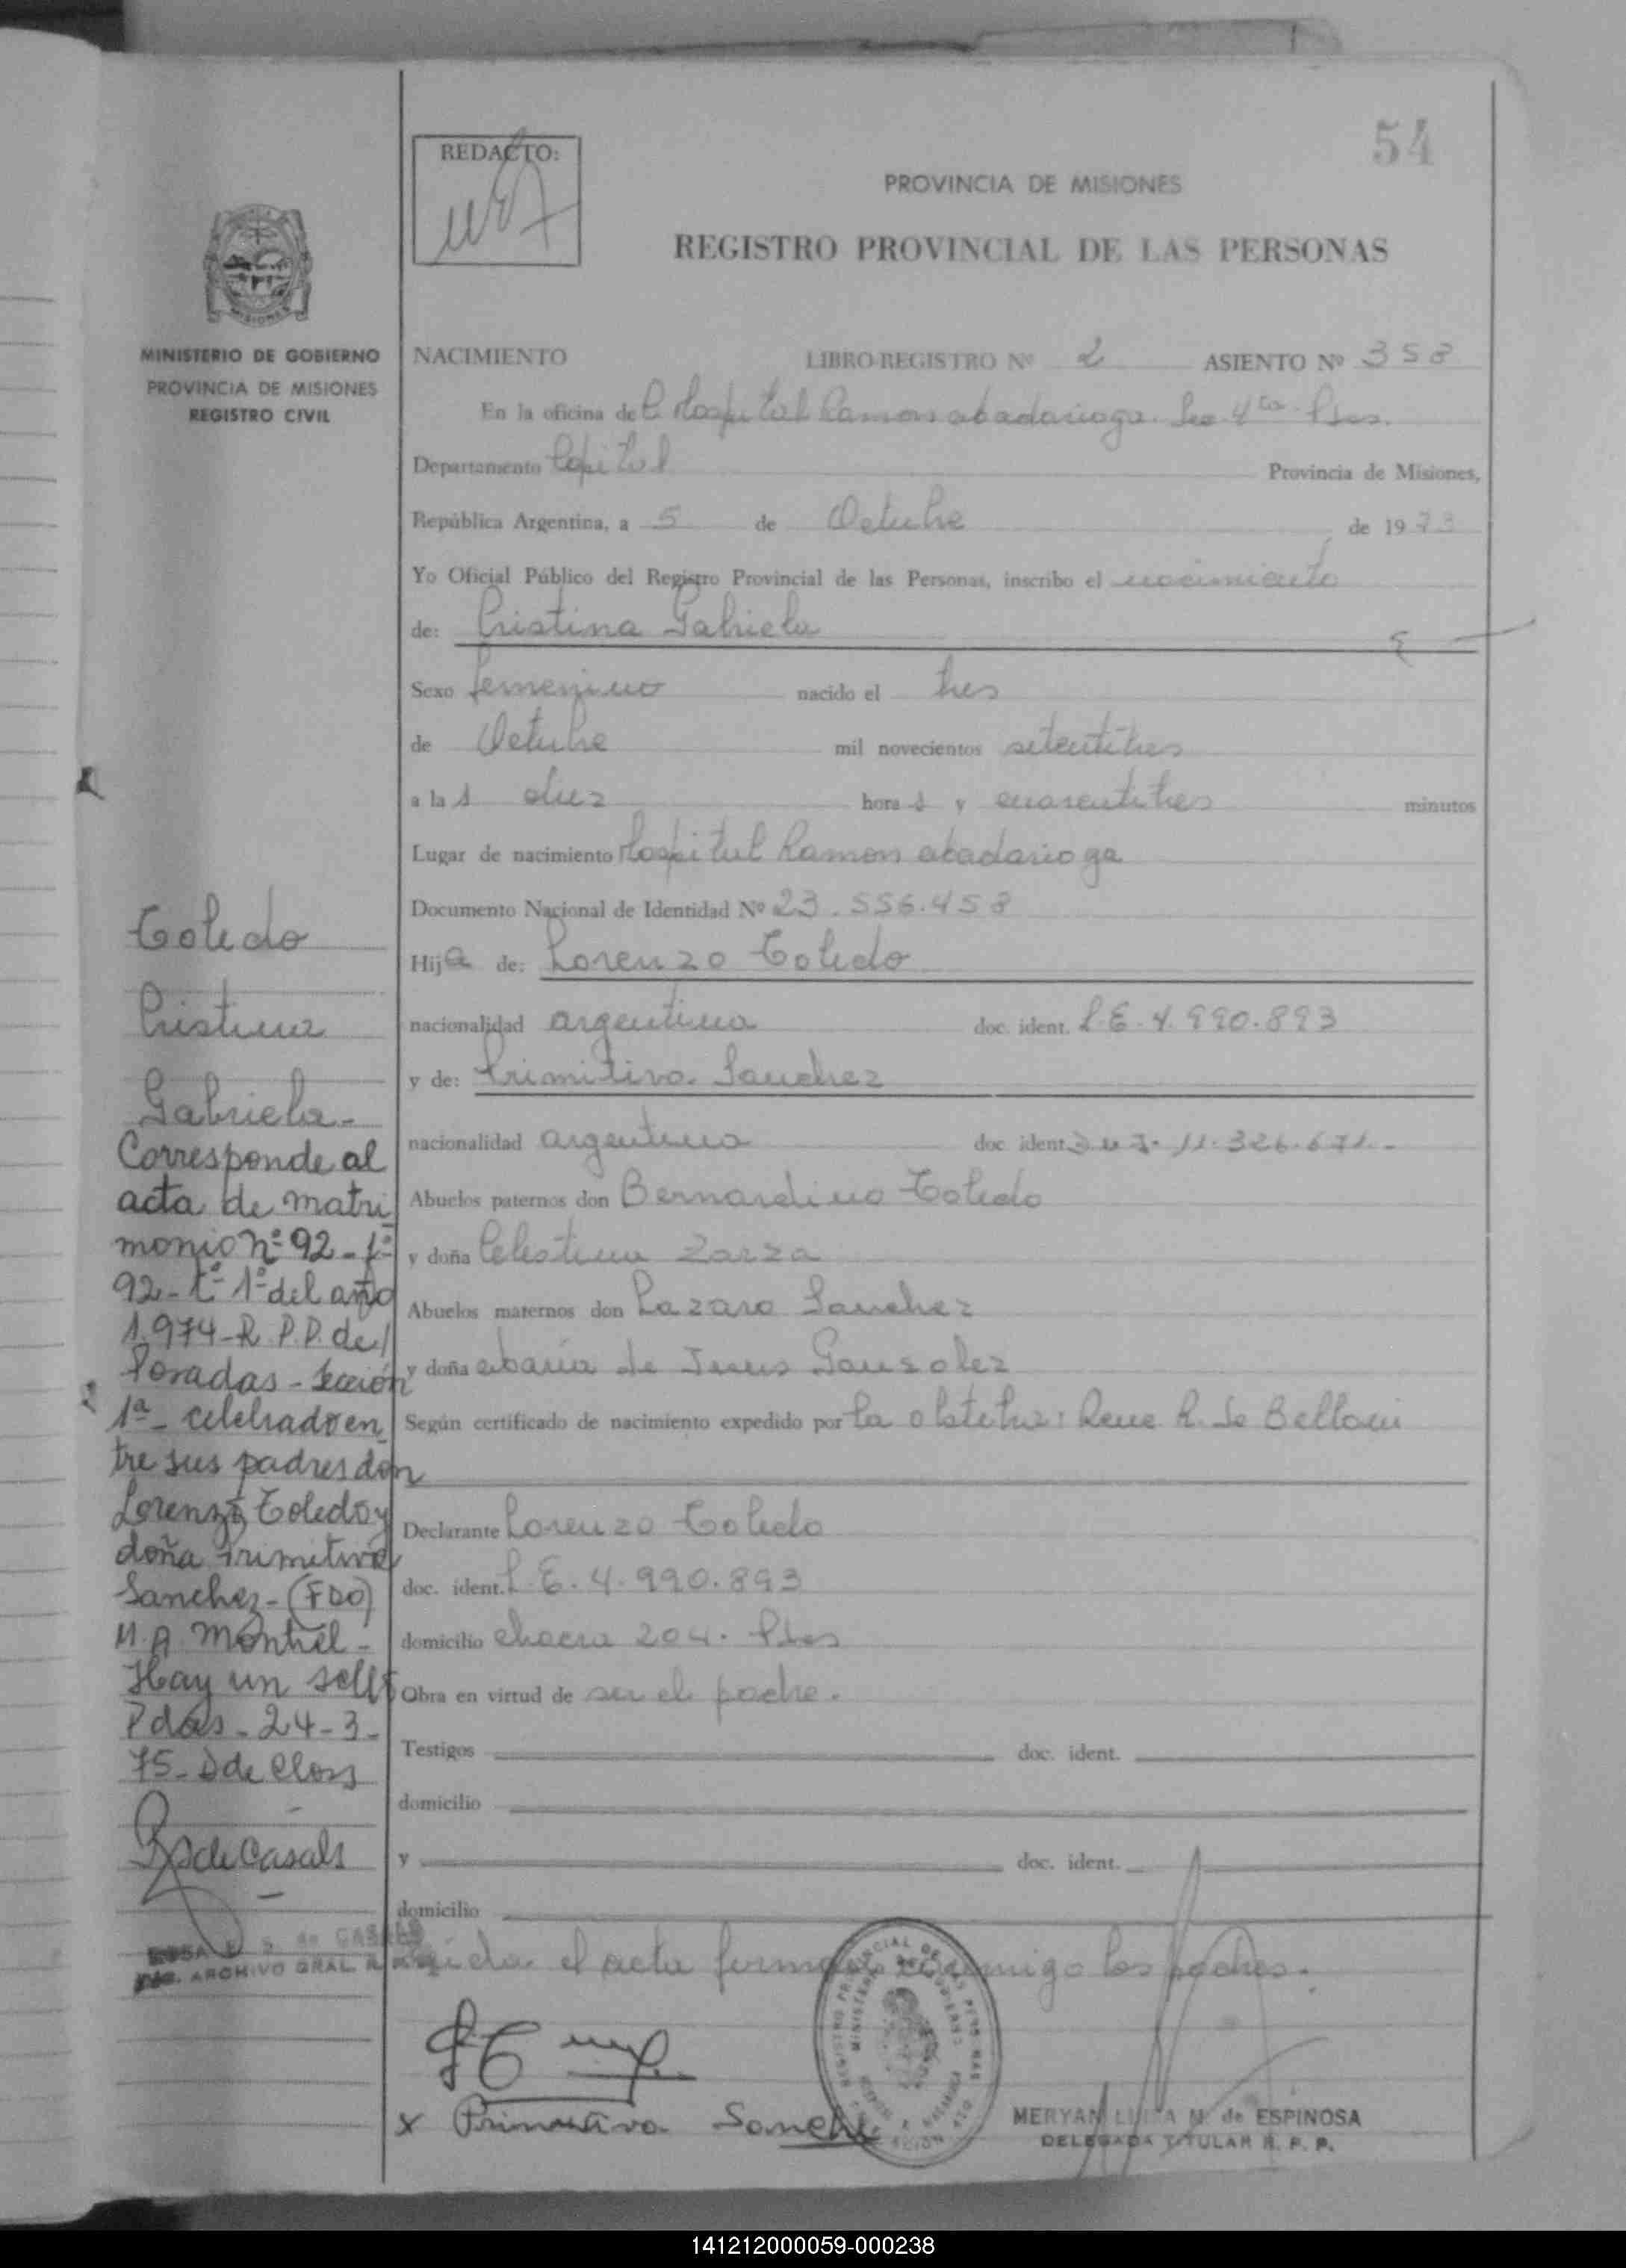 54
REDACTO:
PROVINCIA DE MISIONES
REGISTRO PROVINCIAL DE LAS PERSONAS
MINISTERIO DE GOBIERNO
PROVINCIA DE MISIONES
REGISTRO CIVIL
NACIMIENTO LIBRO-REGISTRO Nº 2 ASIENTO Nº 358
En la oficina del Hospital Ramon abadarioga. Sec 4ta Pdas.
Departamento Capital Provincia de Misiones,
República Argentina, a 5 de Octubre de 1973
Yo Oficial Público del Registro Provincial de las Personas, inscribo el nacimiento
de: Cristina Gabriela
Sexo femenino nacido el tres
de Octubre mil novecientos setentitres
a la s diez hora s y cuarentitres minutos
Lugar de nacimiento Hospital Ramon abadarioga
Documento Nacional de Identidad Nº 23.556.458
Hija de: Lorenzo Toledo
nacionalidad argentina doc. ident. L.E. 4.990.893
y de: Primitiva Sanchez
nacionalidad argentina doc. ident. 11.326.671.-
Abuelos paternos don Bernardino Toledo
y doña Celestina Zarza
Abuelos maternos don Lazaro Sanchez
y doña Maria de Jesus Gonzalez
Según certificado de nacimiento expedido por la obstetra: Rene R. de Belloni
Declarante Lorenzo Toledo
doc. ident. L.E. 4.990.893
domicilio chacra 204. Pdas
Obra en virtud de ser el padre.
Testigos doc. ident.
domicilio
y doc. ident.
domicilio
el acta firman conmigo los padres.
Toledo
Cristina
Gabriela-
Corresponde al
acta de matri
monio nº 92 - fº
92 - tº 1º del año
1.974 - R.P.P. de
Posadas - sección
1ª - celebrado en
tre sus padres don
Lorenzo Toledo y
doña Primitiva
Sanchez - (FDO)
M.A. Montiel -
Hay un sello
Pdas - 24 - 3 -
75 - D de Closs
R S de Casals
ROSA E. S. de CASALS
ARCHIVO GRAL. R
x Primitiva Sanche
MERYAN LUISA M. de ESPINOSA
DELEGADA TITULAR R. P. P.
141212000059-000238